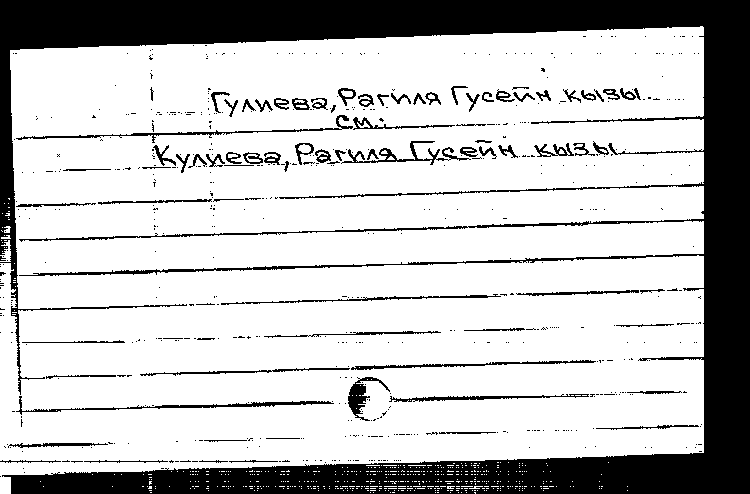 Гулиева, Рагиля Гусейн кызы
см.:
Кулиева, Рагиля Гусейн кызы